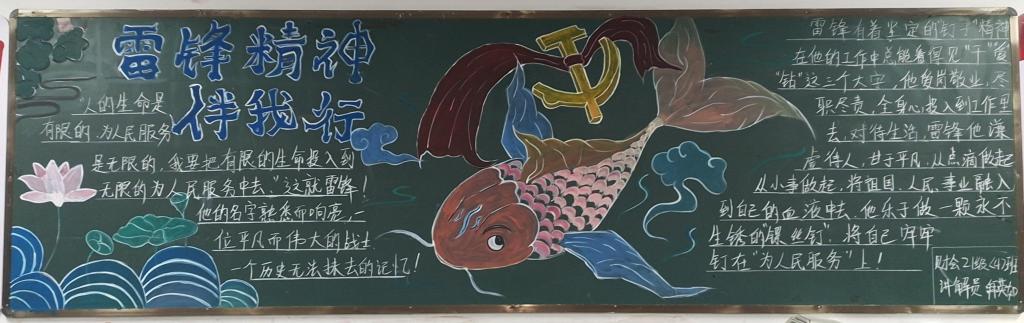 雷锋精神
伴我行
"人的生命是
有限的,为人民服务
是无限的,我要把有限的生命投入到
无限的为人民服务中去,"这就雷锋!
他的名字融焦而响亮,一
位平凡而伟大的战士
一个历史无法抹去的记忆!
雷锋有着坚定的钉子"精神
在他的工作中总能看得见"干""鱼
"钻"这三个大字,他爱岗敬业,尽
职尽责,全身心投入到工作里
去,对待生活,雷锋他谦
虚待人,甘于平凡,从点滴做起
从小事做起,将祖国、人民、事业融入
到自己的血液中去,他乐于做一颗永不
生锈的"螺丝钉",将自己牢牢
钉在"为人民服务"上!
财会21级(4)班
讲解员